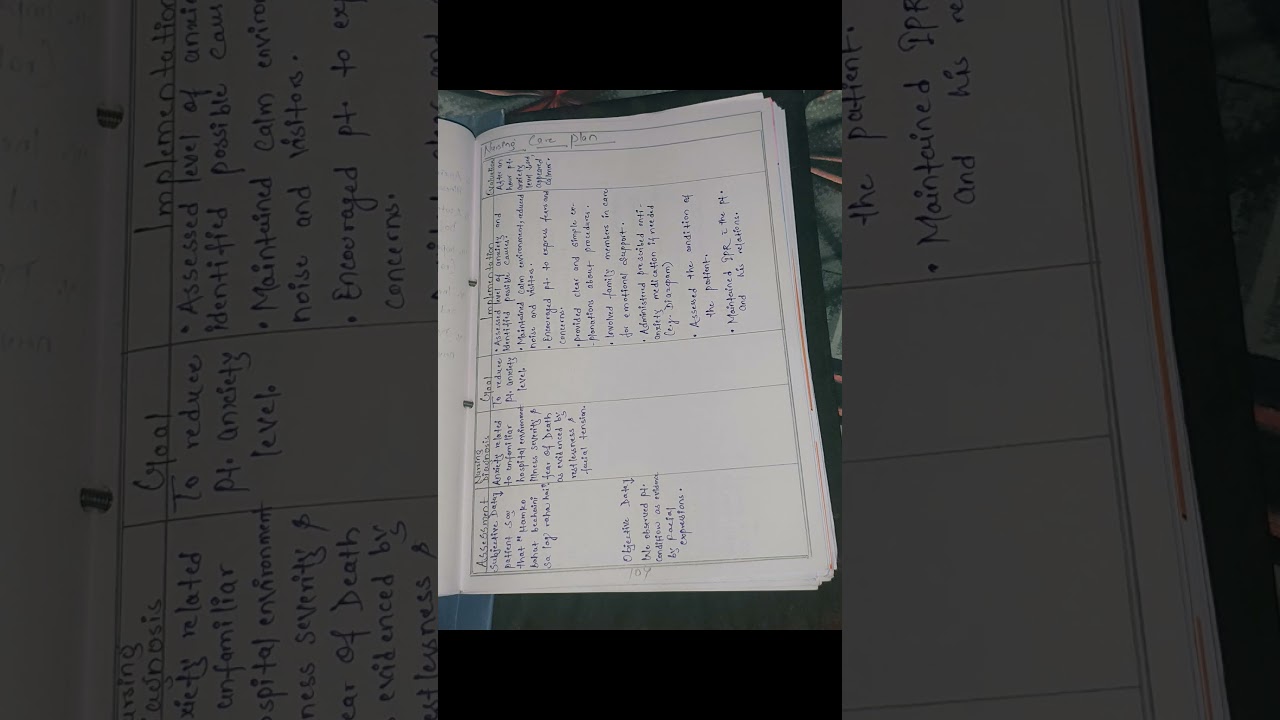 Nursing Care Plan
Assessment
Subjective Data↓
patient say
that "Hamko
bahat bechaini
sa lag raha hai"
Objective Data↓
We observed pt.
condition as evidence
by Facial
expressions.
Nursing
Diagnosis
Anxiety related
to unfamiliar
hospital environment
illness severity &
fear of Death
as evidenced by
restlessness &
facial tension.
Goal
To reduce
pt. anxiety
level.
Implementation
• Assessed level of anxiety and
identified possible causes.
• Maintained calm environment, reduced
noise and visitors.
• Encouraged pt to express fears and
concerns.
• provided clear and simple ex-
-planations about procedures.
• Involved family members in care
for emotional support.
• Administered prescribed anti-
anxiety medication if needed
(eg. Diazepam)
• Assessed the condition of
the patient.
• Maintained IPR c̄ the pt.
and his relations.
Evaluation
After an
hour pt.
anxiety
level low
appeared
calmer.
104